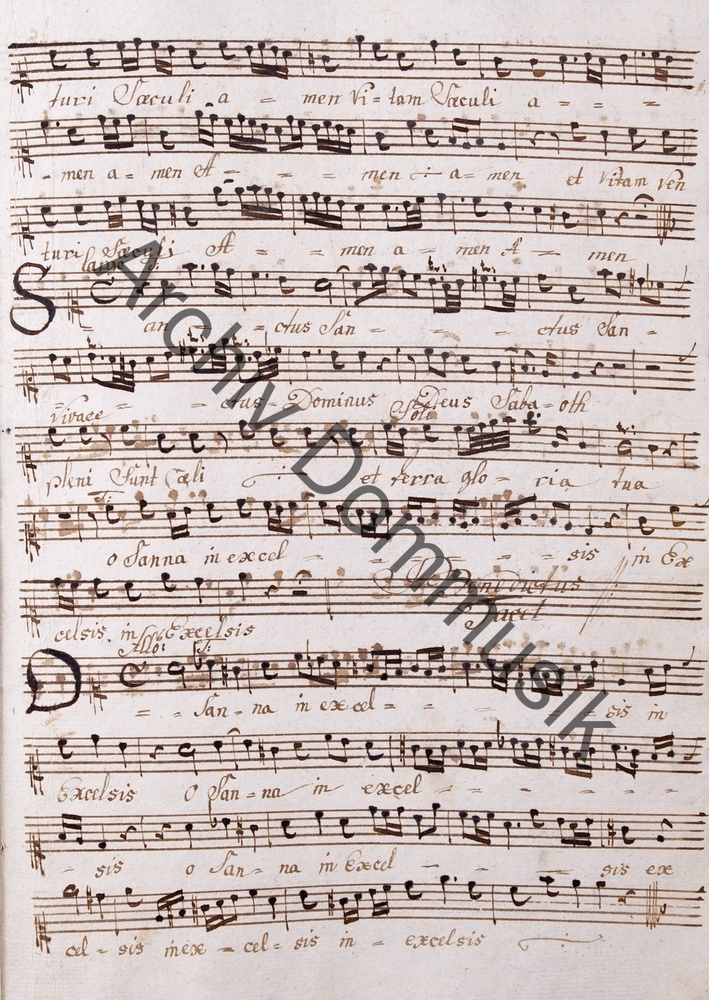 turi Sæculi a = men Vi = tam Sæculi a = = = =
- men a = men A = = = = men ÷ a = men et Vitam Ven
turi Sæculi A = = = men a = men A = men
San = = ctus San = = = ctus San =
Vivace
= = = = ctus = Dominus Deus Saba = oth
Soli
pleni Sunt Cæli ÷ et terra glo = ria tua
o Sanna in excel = = = = = = sis in Ex
Benedictus
celsis in Excelsis
Tacet
Allo: S:
O = = San = na in excel = = = = = sis in
Excelsis O San = na in excel = = = = =
= sis o San = na in Excel = = = sis ex
cel = sis in ex = cel = sis in = excelsis ÷
Archiv Dommusik